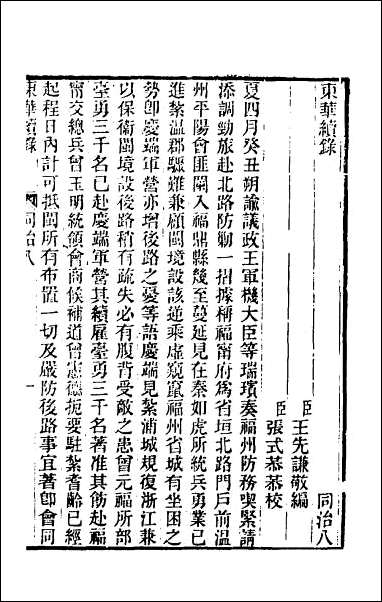 東華續錄
同治八
臣王先謙敬編
臣張式恭恭校
夏四月癸丑朔諭議政王軍機大臣等瑞璸奏福州防務喫緊請
添調勁旅赴北路防勦一摺據稱福甯府為省垣北路門戶前溫
州平陽會匪闌入福鼎縣幾至蔓延見在秦如虎所統兵勇業已
進紮溫郡驟難兼顧閩境設該逆乘虛窺竄福州省城有坐困之
勢卽慶端軍營亦增後路之憂等語慶端見紮浦城規復浙江兼
以保衞閩境設後路稍有疏失必有腹背受敵之患曾元福所部
臺勇三千名已赴慶端軍營其續雇臺勇三千名著准其飭赴福
甯交總兵曾玉明統領會商候補道曾憲德扼要駐紮耆齡已經
起程日內計可抵閩所有布置一切及嚴防後路事宜著卽會同
東華續錄
同治八
一